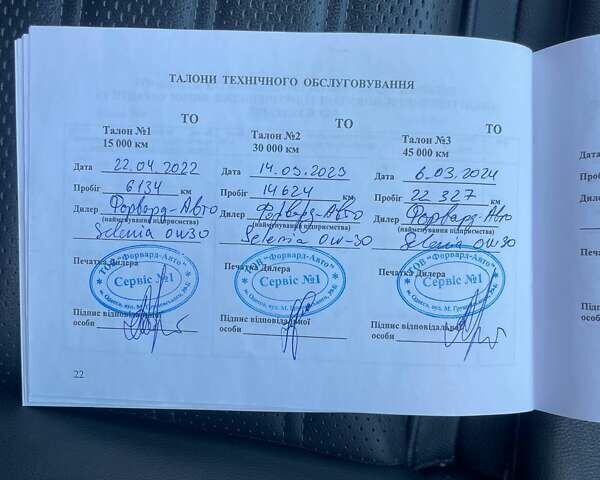 ТАЛОНИ ТЕХНІЧНОГО ОБСЛУГОВУВАННЯ
ТО
Талон №1
15 000 км
Дата 22.04.2022
Пробіг 6134 км
Дилер Форвард-Авто
(найменування підприємства)
Selenia 0w30
Печатка Дилера
ТОВ "Форвард-Авто"
Сервіс №1
Підпис відповідальної
особи
ТО
Талон №2
30 000 км
Дата 14.03.2023
Пробіг 14624 км
Дилер Форвард-Авто
(найменування підприємства)
Selenia 0w-30
Печатка Дилера
ТОВ "Форвард-Авто"
Сервіс №1
Підпис відповідальної
особи
ТО
Талон №3
45 000 км
Дата 6.03.2024
Пробіг 22 327 км
Дилер Форвард-Авто
(найменування підприємства)
Selenia 0w30
Печатка Дилера
ТОВ "Форвард-Авто"
Сервіс №1
Підпис відповідальної
особи
22